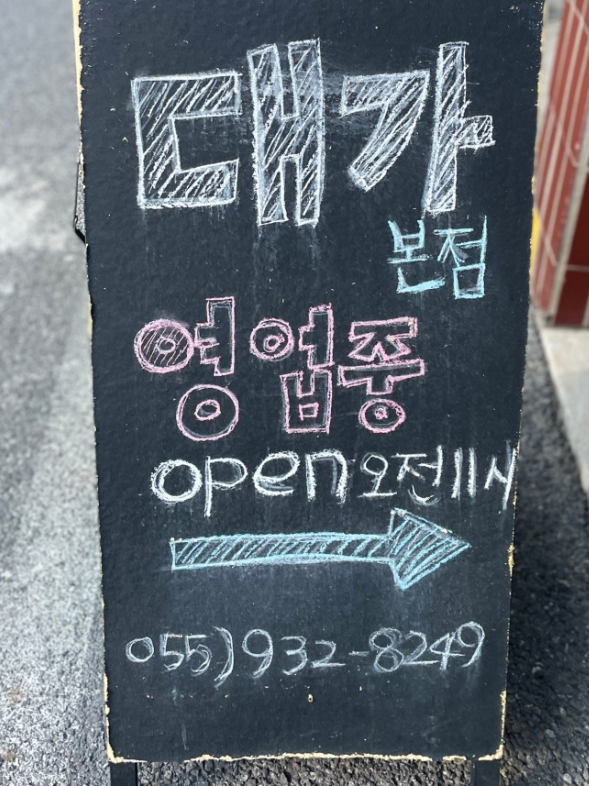 대가
본점
영업중
open 오전11시
055)932-8249